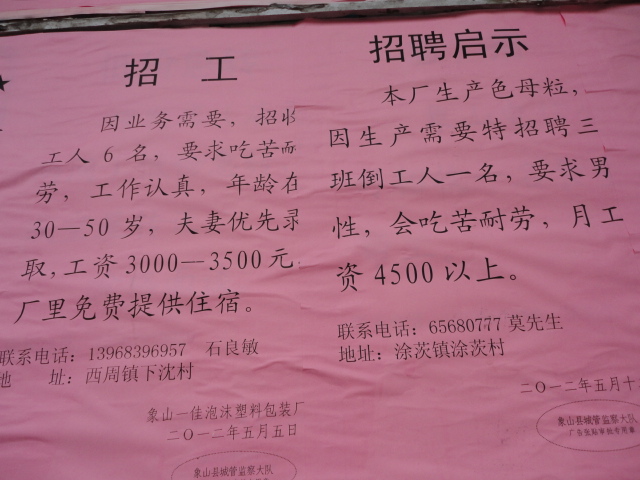 招 工
因业务需要，招收
工人 6 名，要求吃苦耐
劳，工作认真，年龄在
30—50 岁，夫妻优先录
取，工资 3000—3500 元
厂里免费提供住宿。
联系电话：13968396957 石良敏
地 址：西周镇下沈村
象山一佳泡沫塑料包装厂
二〇一二年五月五日
象山县城管监察大队
招聘启示
本厂生产色母粒，
因生产需要特招聘三
班倒工人一名，要求男
性，会吃苦耐劳，月工
资 4500 以上。
联系电话：65680777 莫先生
地址：涂茨镇涂茨村
二〇一二年五月十
象山县城管监察大队